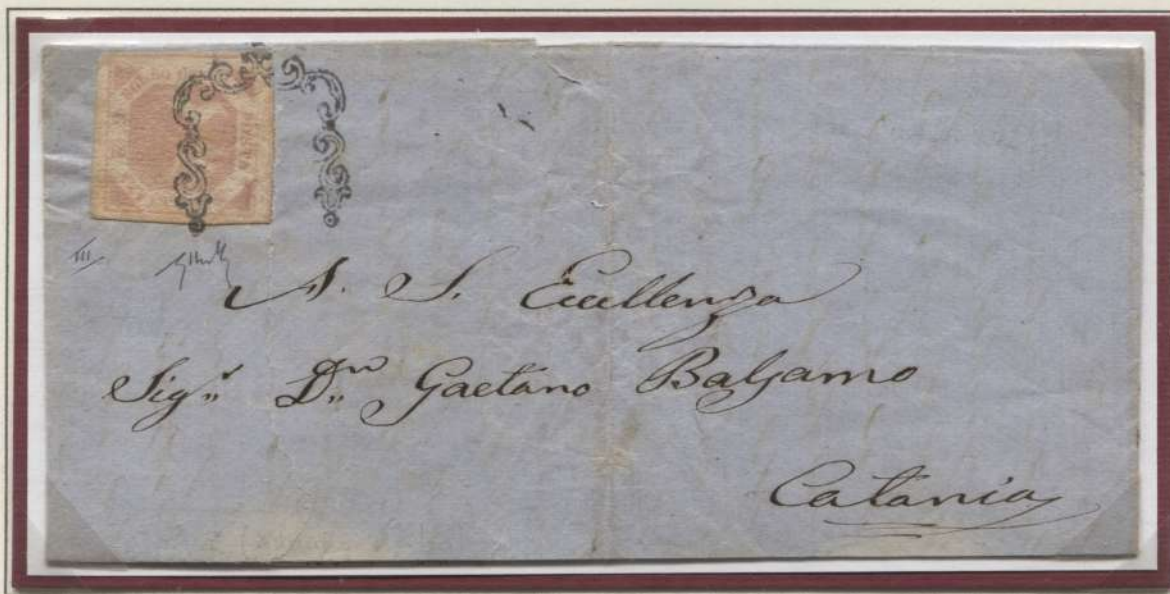 III
A. S. Eccellenza
Sig.r D.n Gaetano Balsamo
Catania